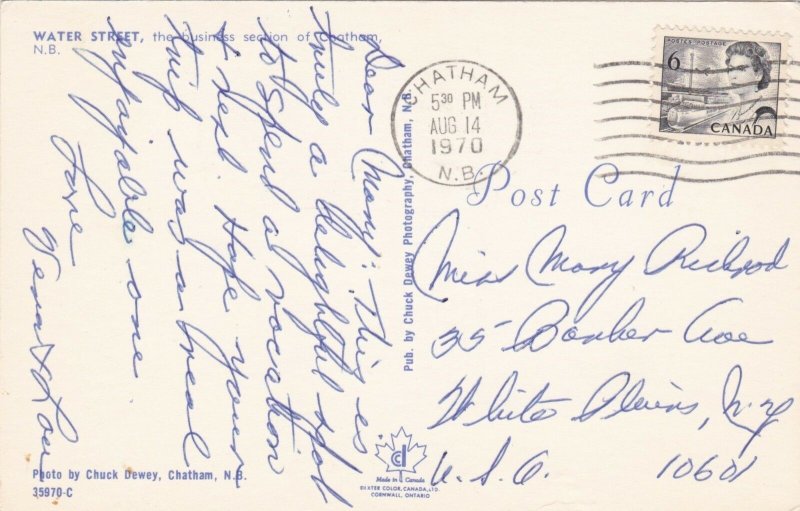 WATER STREET, the business section of Chatham,
N.B.
Dear Mary: This is
truly a delightful spot
to spend a vacation
& rest. Hope your
trip was a real
enjoyable one.
Love
& Lou
Photo by Chuck Dewey, Chatham, N.B.
35970-C
Pub. by Chuck Dewey Photography, Chatham, N.B.
CHATHAM
5 30 PM
AUG 14
1970
N.B.
POSTES POSTAGE
6
CANADA
Post Card
Miss Mary
35 Ave
White Plains, N.Y.
U.S.A. 10601
Made in Canada
DEXTER COLOR, CANADA, LTD.
CORNWALL, ONTARIO